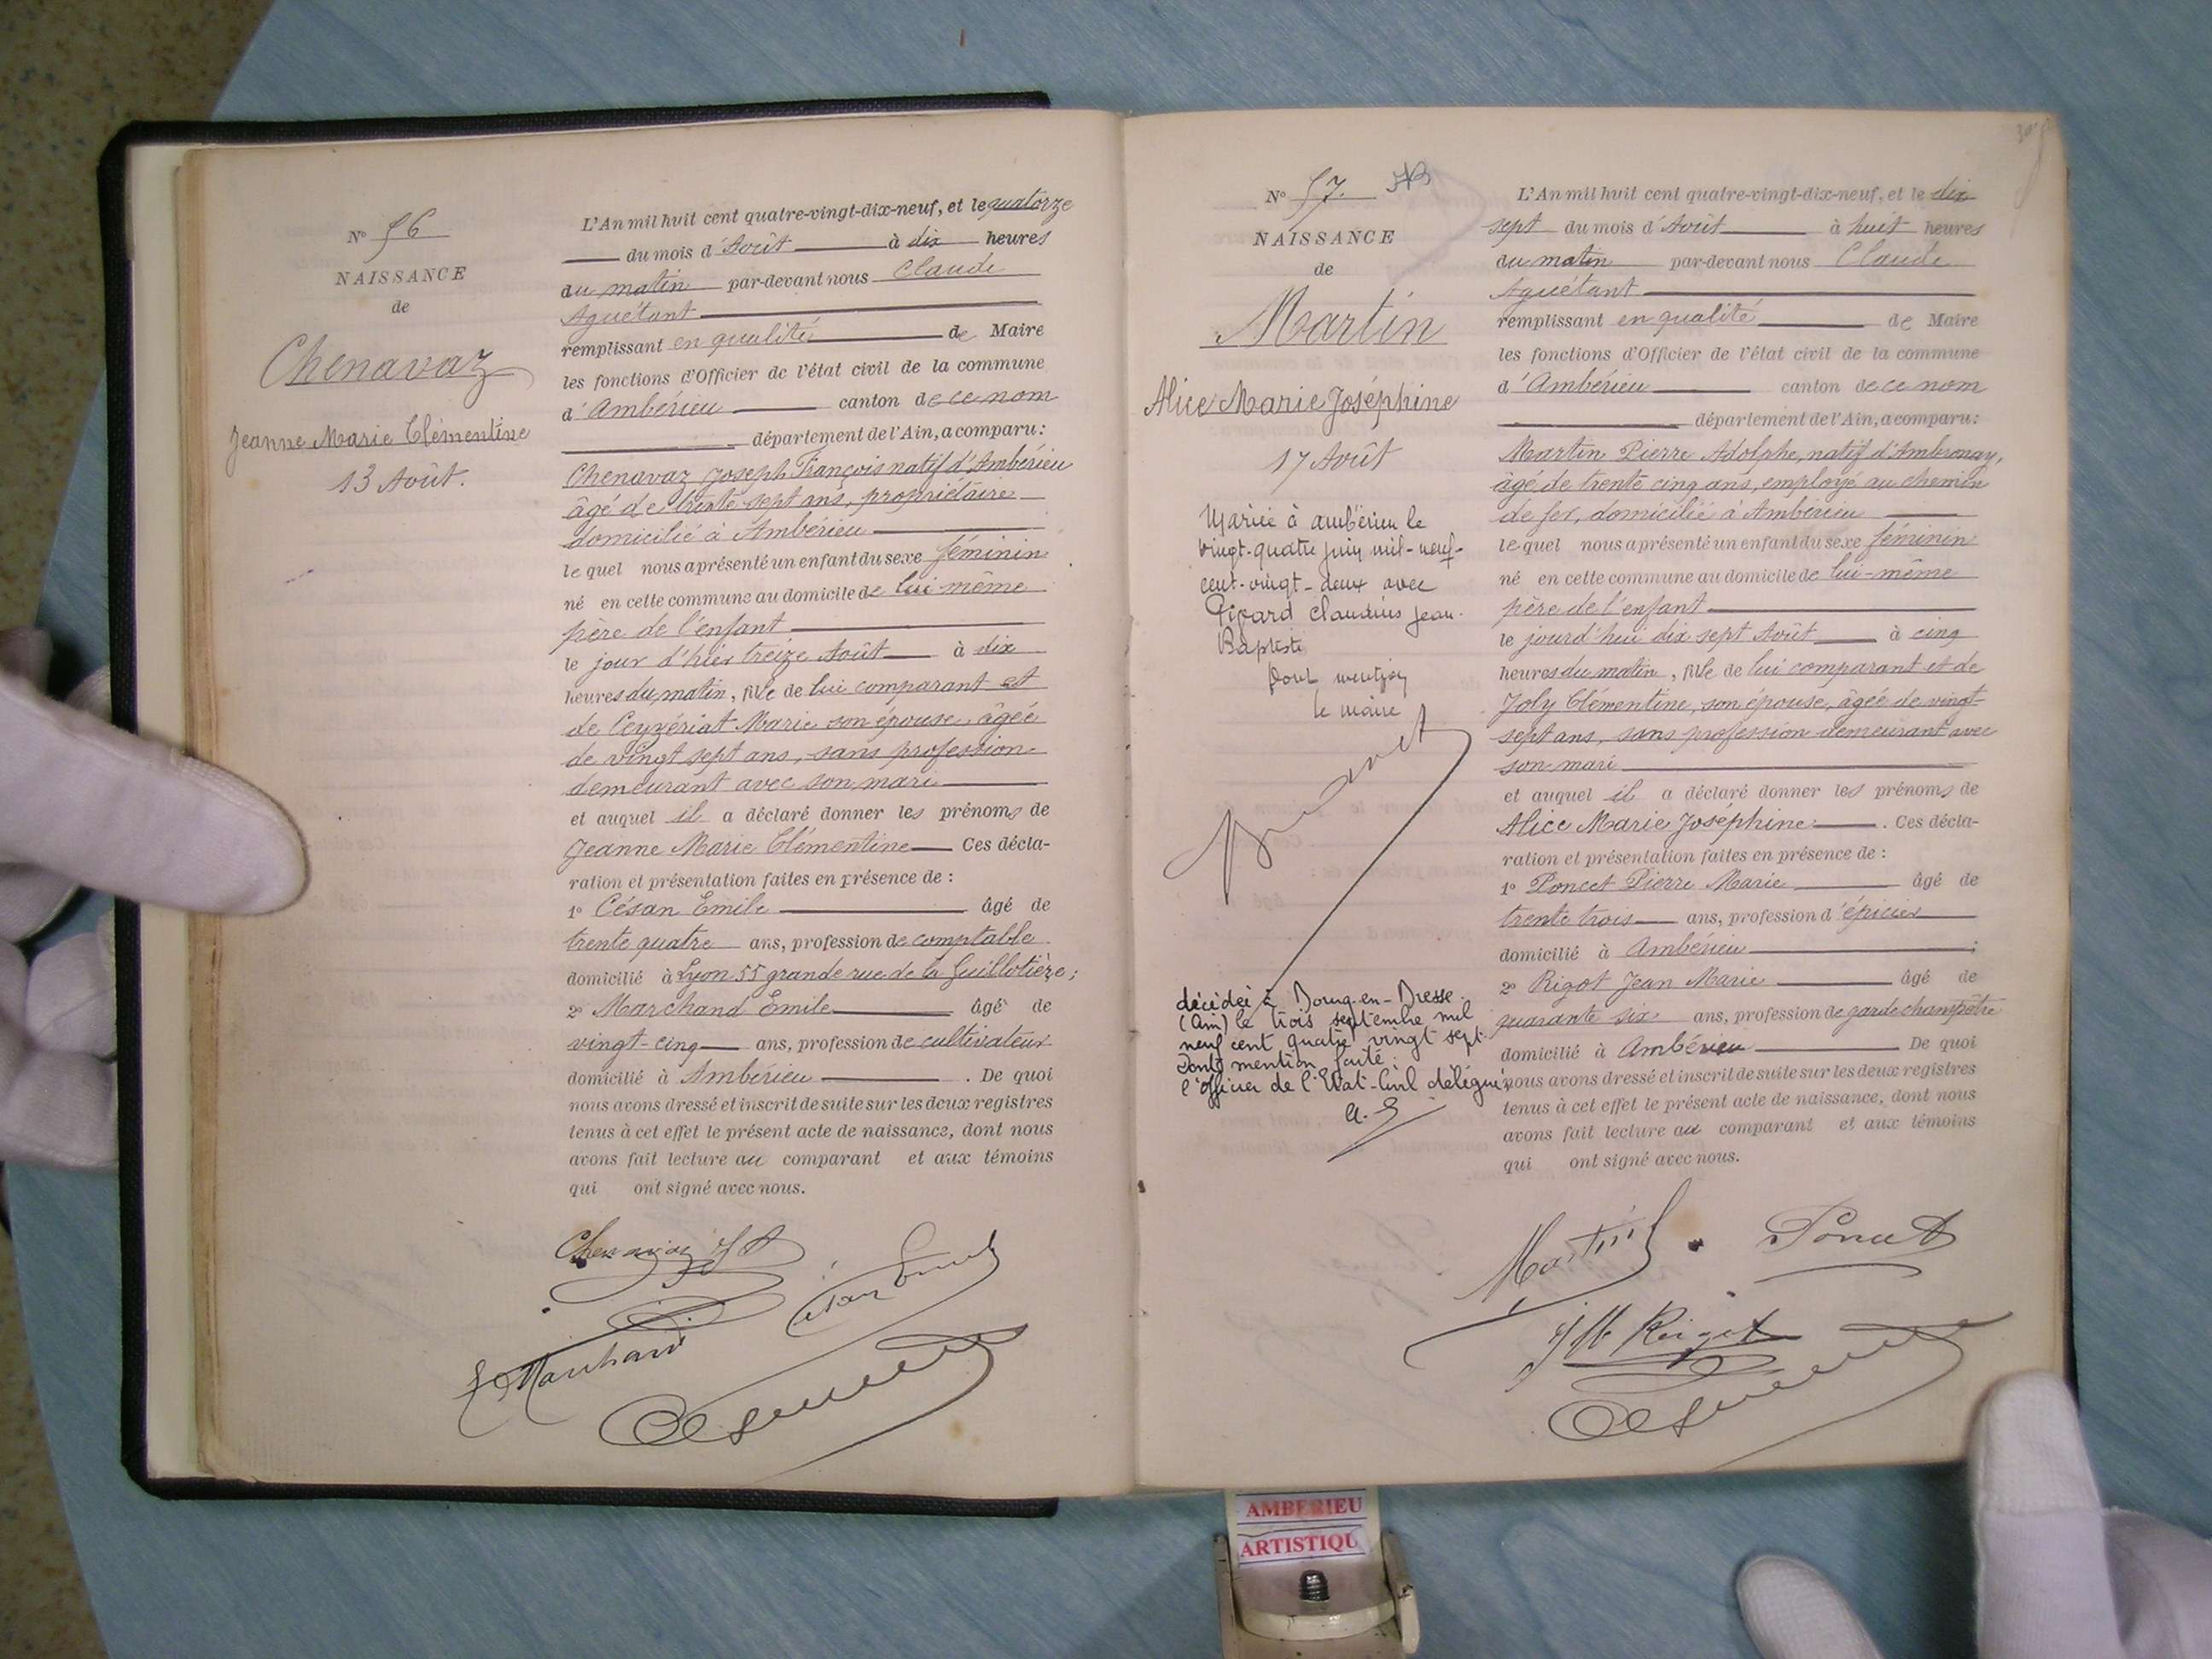 N° 56
NAISSANCE
de
Chenavaz
Jeanne Marie Clémentine
13 Août.
L'An mil huit cent quatre-vingt-dix-neuf, et le quatorze
du mois d'Août à dix heures
du matin par-devant nous Claude
Aguétant
remplissant en qualité de Maire
les fonctions d'Officier de l'état civil de la commune
d'Ambérieu canton de ce nom
département de l'Ain, a comparu:
Chenavaz Joseph François natif d'Ambérieu
âgé de trente-sept ans, propriétaire
domicilié à Ambérieu
lequel nous a présenté un enfant du sexe féminin
né en cette commune au domicile de lui-même
père de l'enfant
le jour d'hier treize Août à dix
heures du matin, fille de lui comparant et
de Ceyzériat Marie son épouse, âgée
de vingt sept ans, sans profession
demeurant avec son mari
et auquel il a déclaré donner les prénoms de
Jeanne Marie Clémentine Ces décla-
ration et présentation faites en présence de :
1° Césan Emile âgé de
trente quatre ans, profession de comptable
domicilié à Lyon 55 grande rue de la Guillotière;
2° Marchand Emile âgé de
vingt-cinq ans, profession de cultivateur
domicilié à Ambérieu. De quoi
nous avons dressé et inscrit de suite sur les deux registres
tenus à cet effet le présent acte de naissance, dont nous
avons fait lecture au comparant et aux témoins
qui ont signé avec nous.
E Marchand
N° 57.
NAISSANCE
de
Martin
Alice Marie Joséphine
17 Août
Mariée à Ambérieu le
vingt-quatre juin mil-neuf-
cent-vingt-deux avec
Claudius Jean-
Baptiste
Pour mention
le maire
décédée à Bourg-en-Bresse
(Ain) le trois septembre mil
neuf cent quatre vingt sept.
Dont mention faite
l'officier de l'Etat-Civil délégué,
L'An mil huit cent quatre-vingt-dix-neuf, et le dix
sept du mois d'Août à huit heures
du matin par-devant nous Claude
Aguétant
remplissant en qualité de Maire
les fonctions d'Officier de l'état civil de la commune
d'Ambérieu canton de ce nom
département de l'Ain, a comparu:
Martin Pierre Adolphe, natif d'Ambronay,
âgé de trente cinq ans, employé au chemin
de fer, domicilié à Ambérieu
lequel nous a présenté un enfant du sexe féminin
né en cette commune au domicile de lui-même
père de l'enfant
le jourd'hui dix sept Août à cinq
heures du matin, fille de lui comparant et de
Joly Clémentine, son épouse, âgée de vingt-
sept ans, sans profession demeurant avec
son mari
et auquel il a déclaré donner les prénoms de
Alice Marie Joséphine. Ces décla-
ration et présentation faites en présence de :
1° Poncet Pierre Marie âgé de
trente trois ans, profession d'épicier
domicilié à Ambérieu;
2° Rigot Jean Marie âgé de
quarante six ans, profession de garde champêtre
domicilié à Ambérieu De quoi
nous avons dressé et inscrit de suite sur les deux registres
tenus à cet effet le présent acte de naissance, dont nous
avons fait lecture au comparant et aux témoins
qui ont signé avec nous.
Martin Poncet
JM Rigot
AMBERIEU
ARTISTIQU